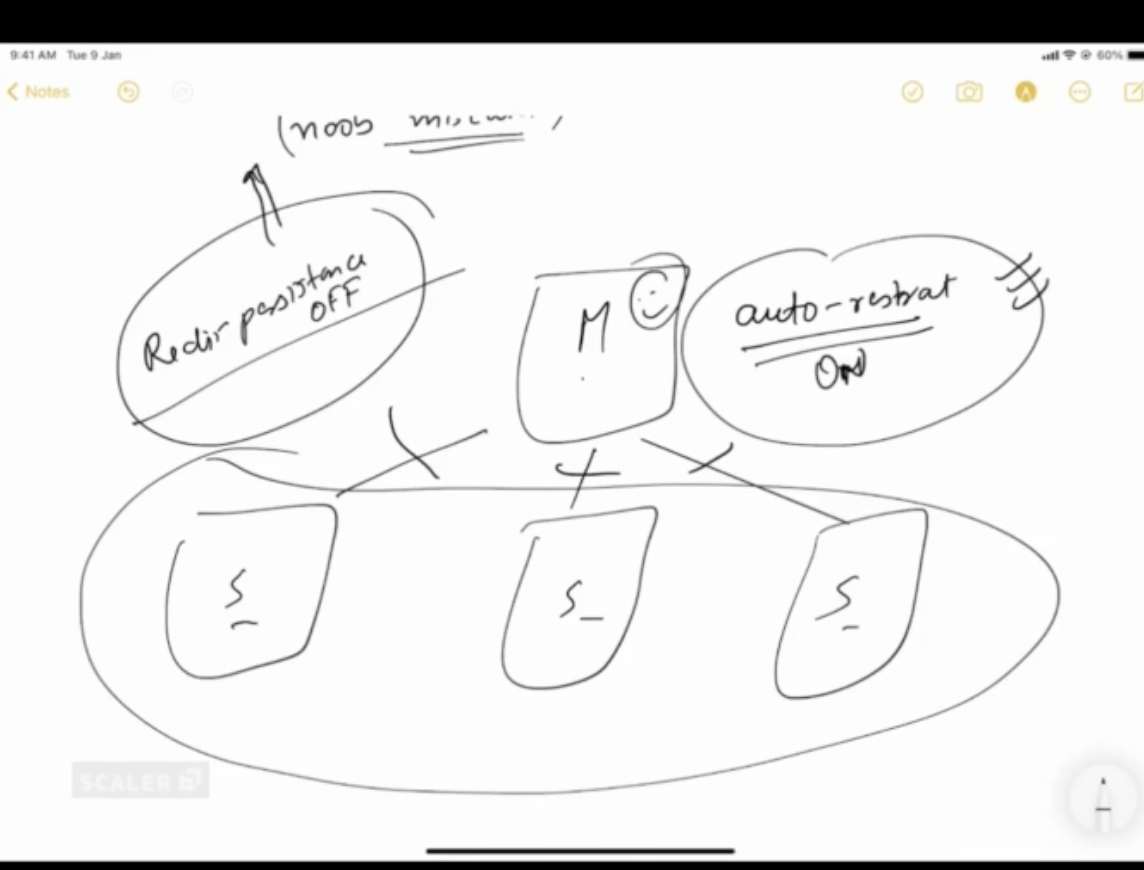 9:41 AM Tue 9 Jan
60%
Notes
(noob
Redis persistance
OFF
M
auto-restrat
ON
S
S
S
SCALER